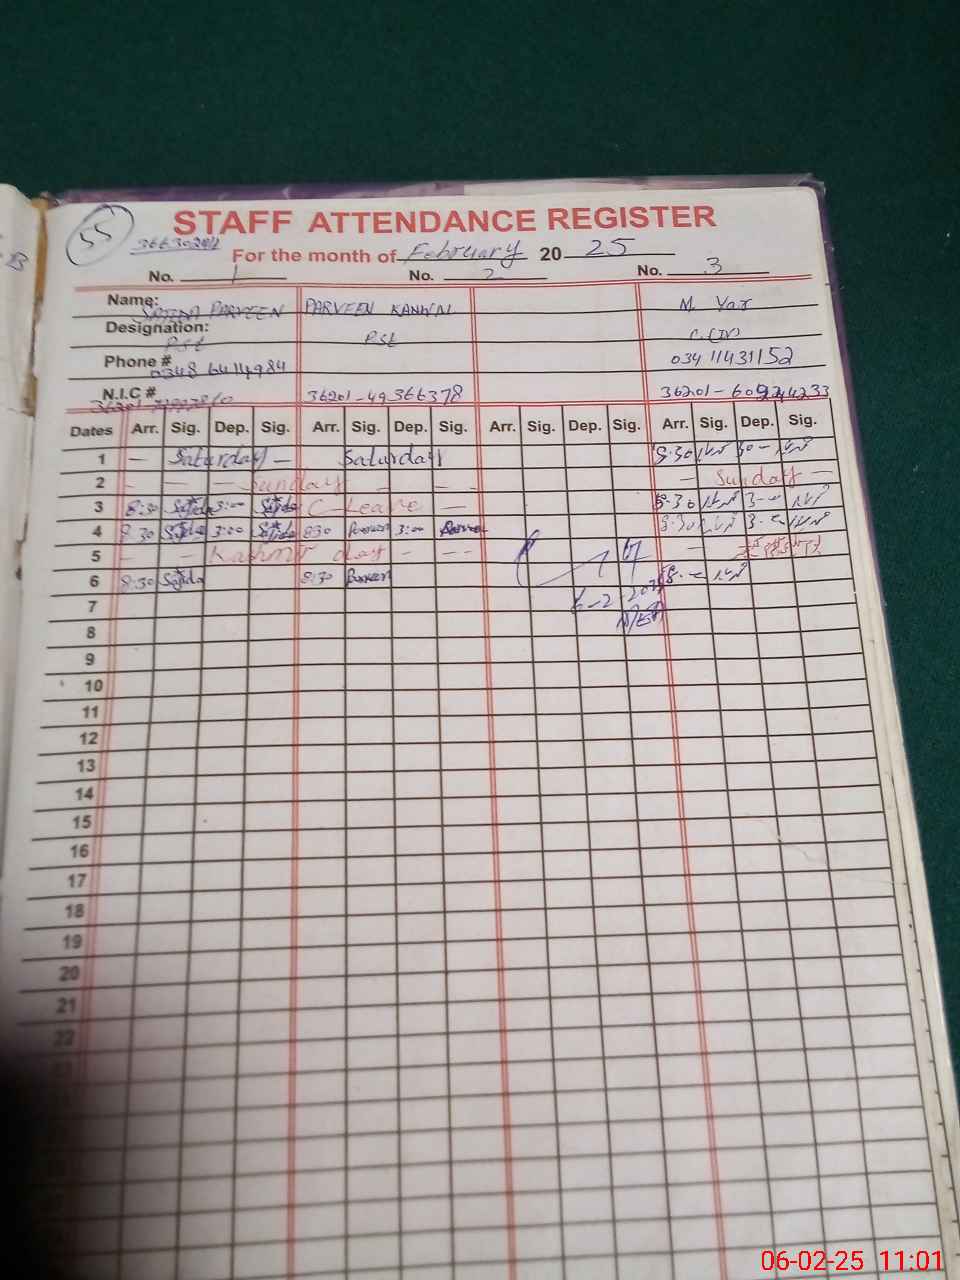 55
STAFF ATTENDANCE REGISTER
36630201
For the month of February 20 25
No. 1 No. 2 No. 3
Name: SAJIDA PARVEEN PARVEEN KANWN M. Yar
Designation: PST PST C.(IV)
Phone # 0348 6414984 034 11431152
N.I.C # 36201-49366378 36201-
Dates Arr. Sig. Dep. Sig. Arr. Sig. Dep. Sig. Arr. Sig. Dep. Sig. Arr. Sig. Dep. Sig.
1 — Saturday — Saturday 8:30
2 — — — Sunday — — — — Sunday —
3 8:30 Sajida 3:00 Sajida C-Leave — 8:30 3-00
4 8:30 Sajida 3:00 Sajida 8:30 Parveen 3:00 Parveen 8:30
5 - - Kashmir day - -- -
6 8:30 Sajida 8:30 Parveen
6-2-2025
7
8
9
10
11
12
13
14
15
16
17
18
19
20
21
22
06-02-25 11:01